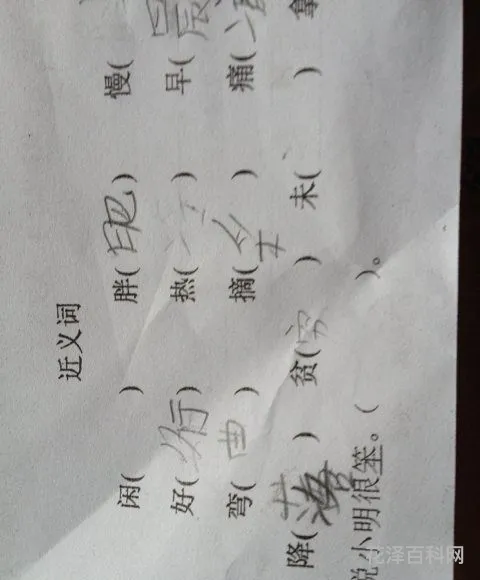 近义词
闲( ) 胖(肥) 慢(
好( ) 热( ) 早(晨
弯(曲) 摘( ) 痛(
降( ) 贫(穷) 未( ) 拿
说小明很笨。( )。
花泽百科网